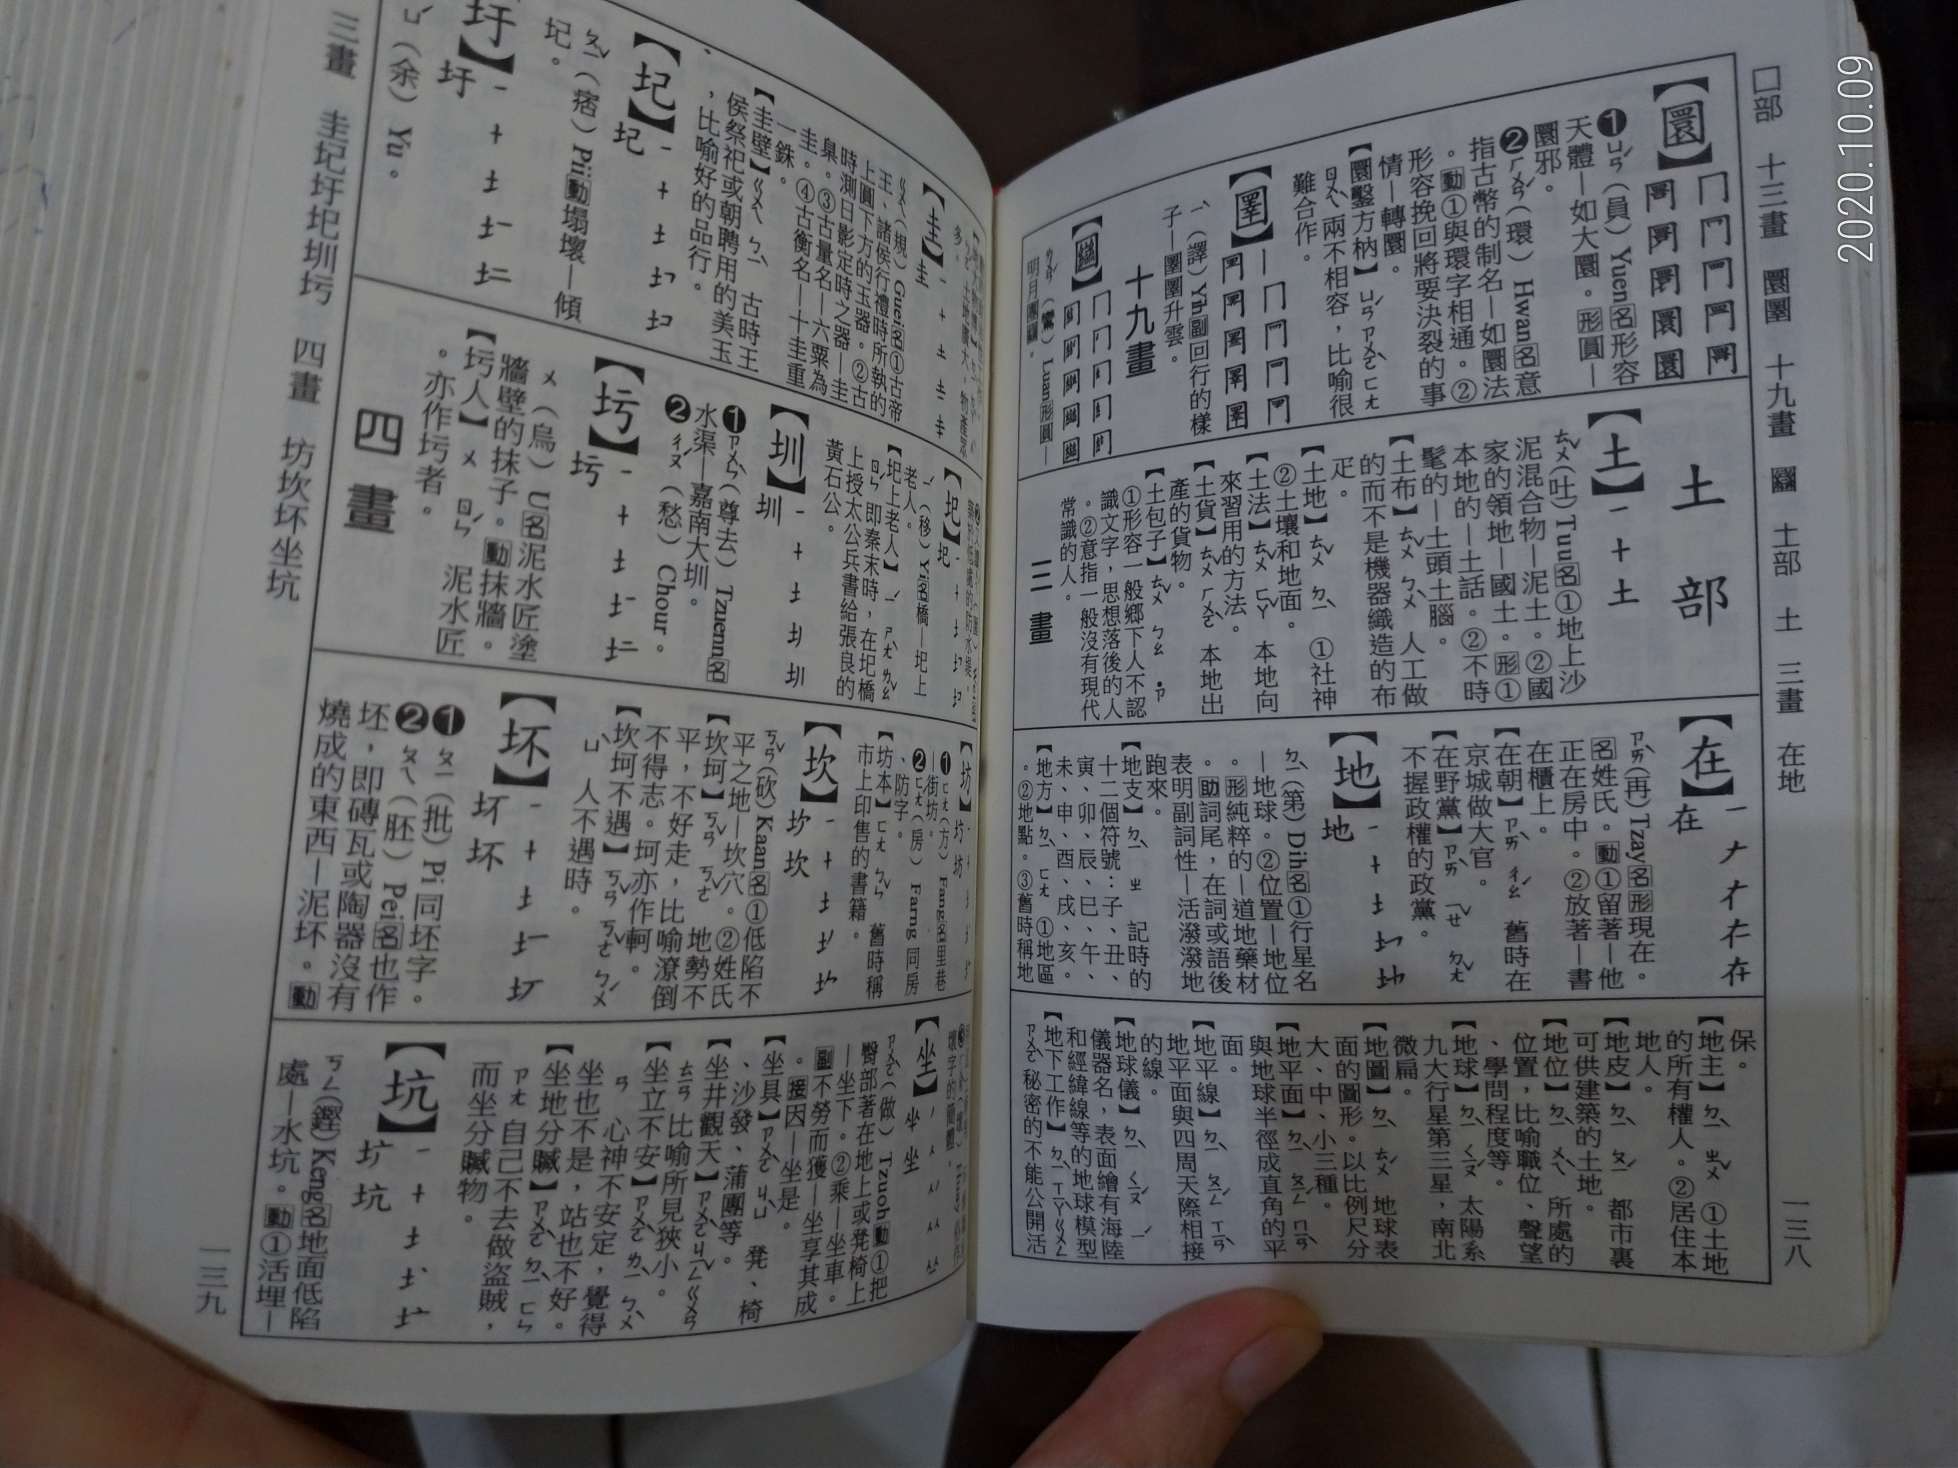 2020.10.09
囗部 十三畫 圜圛 十九畫 圞 土部 土 三畫 在地
一三八
【圜】
❶ㄩㄢˊ(員)Yuen名形容
天體—如大圜。形圓—
圜邪。
❷ㄏㄨㄢˊ(環)Hwan名意
指古幣的制名—如圜法
。動①與環字相通。②
形容挽回將要決裂的事
情—轉圜。
【圜鑿方枘】ㄩㄢˊ ㄗㄨㄛˋ ㄈㄤ
ㄖㄨㄟˋ 兩不相容,比喻很
難合作。
【圛】
ㄧˋ(譯)Yih副回行的樣
子—圛圛升雲。
十九畫
【圞】
ㄌㄨㄢˊ(鸞)Luan形圓—
明月團圞。
土部
【土】一十土
ㄊㄨˇ(吐)Tuu名①地上沙
泥混合物—泥土。②國
家的領地—國土。形①
本地的—土話。②不時
髦的—土頭土腦。
【土布】ㄊㄨˇ ㄅㄨˋ 人工做
的而不是機器織造的布
疋。
【土地】ㄊㄨˇ ㄉㄧˋ ①社神
②土壤和地面。
【土法】ㄊㄨˇ ㄈㄚˇ 本地向
來習用的方法。
【土貨】ㄊㄨˇ ㄏㄨㄛˋ 本地出
產的貨物。
【土包子】ㄊㄨˇ ㄅㄠ ˙ㄗ
①形容一般鄉下人不認
識文字,思想落後的人
。②意指一般沒有現代
常識的人。
三畫
【在】一ナ才在在在
ㄗㄞˋ(再)Tzay名形現在。
名姓氏。動①留著—他
正在房中。②放著—書
在櫃上。
【在朝】ㄗㄞˋ ㄔㄠˊ 舊時在
京城做大官。
【在野黨】ㄗㄞˋ ㄧㄝˇ ㄉㄤˇ
不握政權的政黨。
【地】
ㄉㄧˋ(第)Dih名①行星名
—地球。②位置—地位
。形純粹的—道地藥材
。助詞尾,在詞或語後
表明副詞性—活潑潑地
跑來。
【地支】ㄉㄧˋ ㄓ 記時的
十二個符號:子、丑、
寅、卯、辰、巳、午、
未、申、酉、戌、亥。
【地方】ㄉㄧˋ ㄈㄤ ①地區
。②地點。③舊時稱地
保。
【地主】ㄉㄧˋ ㄓㄨˇ ①土地
的所有權人。②居住本
地人。
【地皮】ㄉㄧˋ ㄆㄧˊ 都市裏
可供建築的土地。
【地位】ㄉㄧˋ ㄨㄟˋ 所處的
位置,比喻職位、聲望
、學問程度等。
【地球】ㄉㄧˋ ㄑㄧㄡˊ 太陽系
九大行星第三星,南北
微扁。
【地圖】ㄉㄧˋ ㄊㄨˊ 地球表
面的圖形。以比例尺分
大、中、小三種。
【地平面】ㄉㄧˋ ㄆㄧㄥˊ ㄇㄧㄢˋ
與地球半徑成直角的平
面。
【地平線】ㄉㄧˋ ㄆㄧㄥˊ ㄒㄧㄢˋ
地平面與四周天際相接
的線。
【地球儀】ㄉㄧˋ ㄑㄧㄡˊ ㄧˊ
儀器名,表面繪有海陸
和經緯線等的地球模型
【地下工作】ㄉㄧˋ ㄒㄧㄚˋ ㄍㄨㄥ
ㄗㄨㄛˋ 秘密的不能公開活
三畫 圭圮圩圯圳圬 四畫 坊坎坏坐坑
一三九
【圭】圭
ㄍㄨㄟ(規)Guei名①古帝
王、諸侯行禮時所執的
上圓下方的玉器。②古
時測日影定時之器—圭
臬。③古量名—六粟為
圭。④古衡名—十圭重
一銖。
【圭璧】ㄍㄨㄟ ㄅㄧˋ 古時王
侯祭祀或朝聘用的美玉
,比喻好的品行。
【圮】圮
ㄆㄧˇ(痞)Pii動塌壞—傾
圮。
【圩】圩
ㄩˊ(余)Yu。
【圯】圯
ㄧˊ(移)Yi名橋—圯上
老人。
【圯上老人】ㄧˊ ㄕㄤˋ ㄌㄠˇ
ㄖㄣˊ 即秦末時,在圯橋
上授太公兵書給張良的
黃石公。
【圳】圳
❶ㄗㄨㄣˋ(尊去)Tzuenn名
水渠—嘉南大圳。
❷ㄔㄡˊ(愁)Chour。
【圬】圬
ㄨ(烏)U名泥水匠塗
牆壁的抹子。動抹牆。
【圬人】ㄨ ㄖㄣˊ 泥水匠
。亦作圬者。
四畫
【坊】坊坊
❶ㄈㄤ(方)Fang名里巷
—街坊。
❷ㄈㄤˊ(房)Farng同房
、防字。
【坊本】ㄈㄤ ㄅㄣˇ 舊時稱
市上印售的書籍。
【坎】坎坎
ㄎㄢˇ(砍)Kaan名①低陷不
平之地—坎穴。②姓氏
【坎坷】ㄎㄢˇ ㄎㄜˇ 地勢不
平,不好走,比喻潦倒
不得志。坷亦作軻。
【坎坷不遇】ㄎㄢˇ ㄎㄜˇ ㄅㄨˊ
ㄩˋ 人不遇時。
【坏】坏坏
❶ㄆㄧ(批)Pi同坯字。
❷ㄆㄟ(胚)Pei名也作
坯,即磚瓦或陶器沒有
燒成的東西—泥坏。動
【坐】坐坐
ㄗㄨㄛˋ(做)Tzuoh動①把
臀部著在地上或凳椅上
—坐下。②乘—坐車。
副不勞而獲—坐享其成
。接因—坐是。
【坐具】ㄗㄨㄛˋ ㄐㄩˋ 凳、椅
、沙發、蒲團等。
【坐井觀天】ㄗㄨㄛˋ ㄐㄧㄥˇ ㄍㄨㄢ
ㄊㄧㄢ 比喻所見狹小。
【坐立不安】ㄗㄨㄛˋ ㄌㄧˋ ㄅㄨˋ
ㄢ 心神不安定,覺得
坐也不是,站也不好。
【坐地分贓】ㄗㄨㄛˋ ㄉㄧˋ ㄈㄣ
ㄗㄤ 自己不去做盜賊,
而坐分贓物。
【坑】坑坑
ㄎㄥ(鏗)Keng名地面低陷
處—水坑。動①活埋—